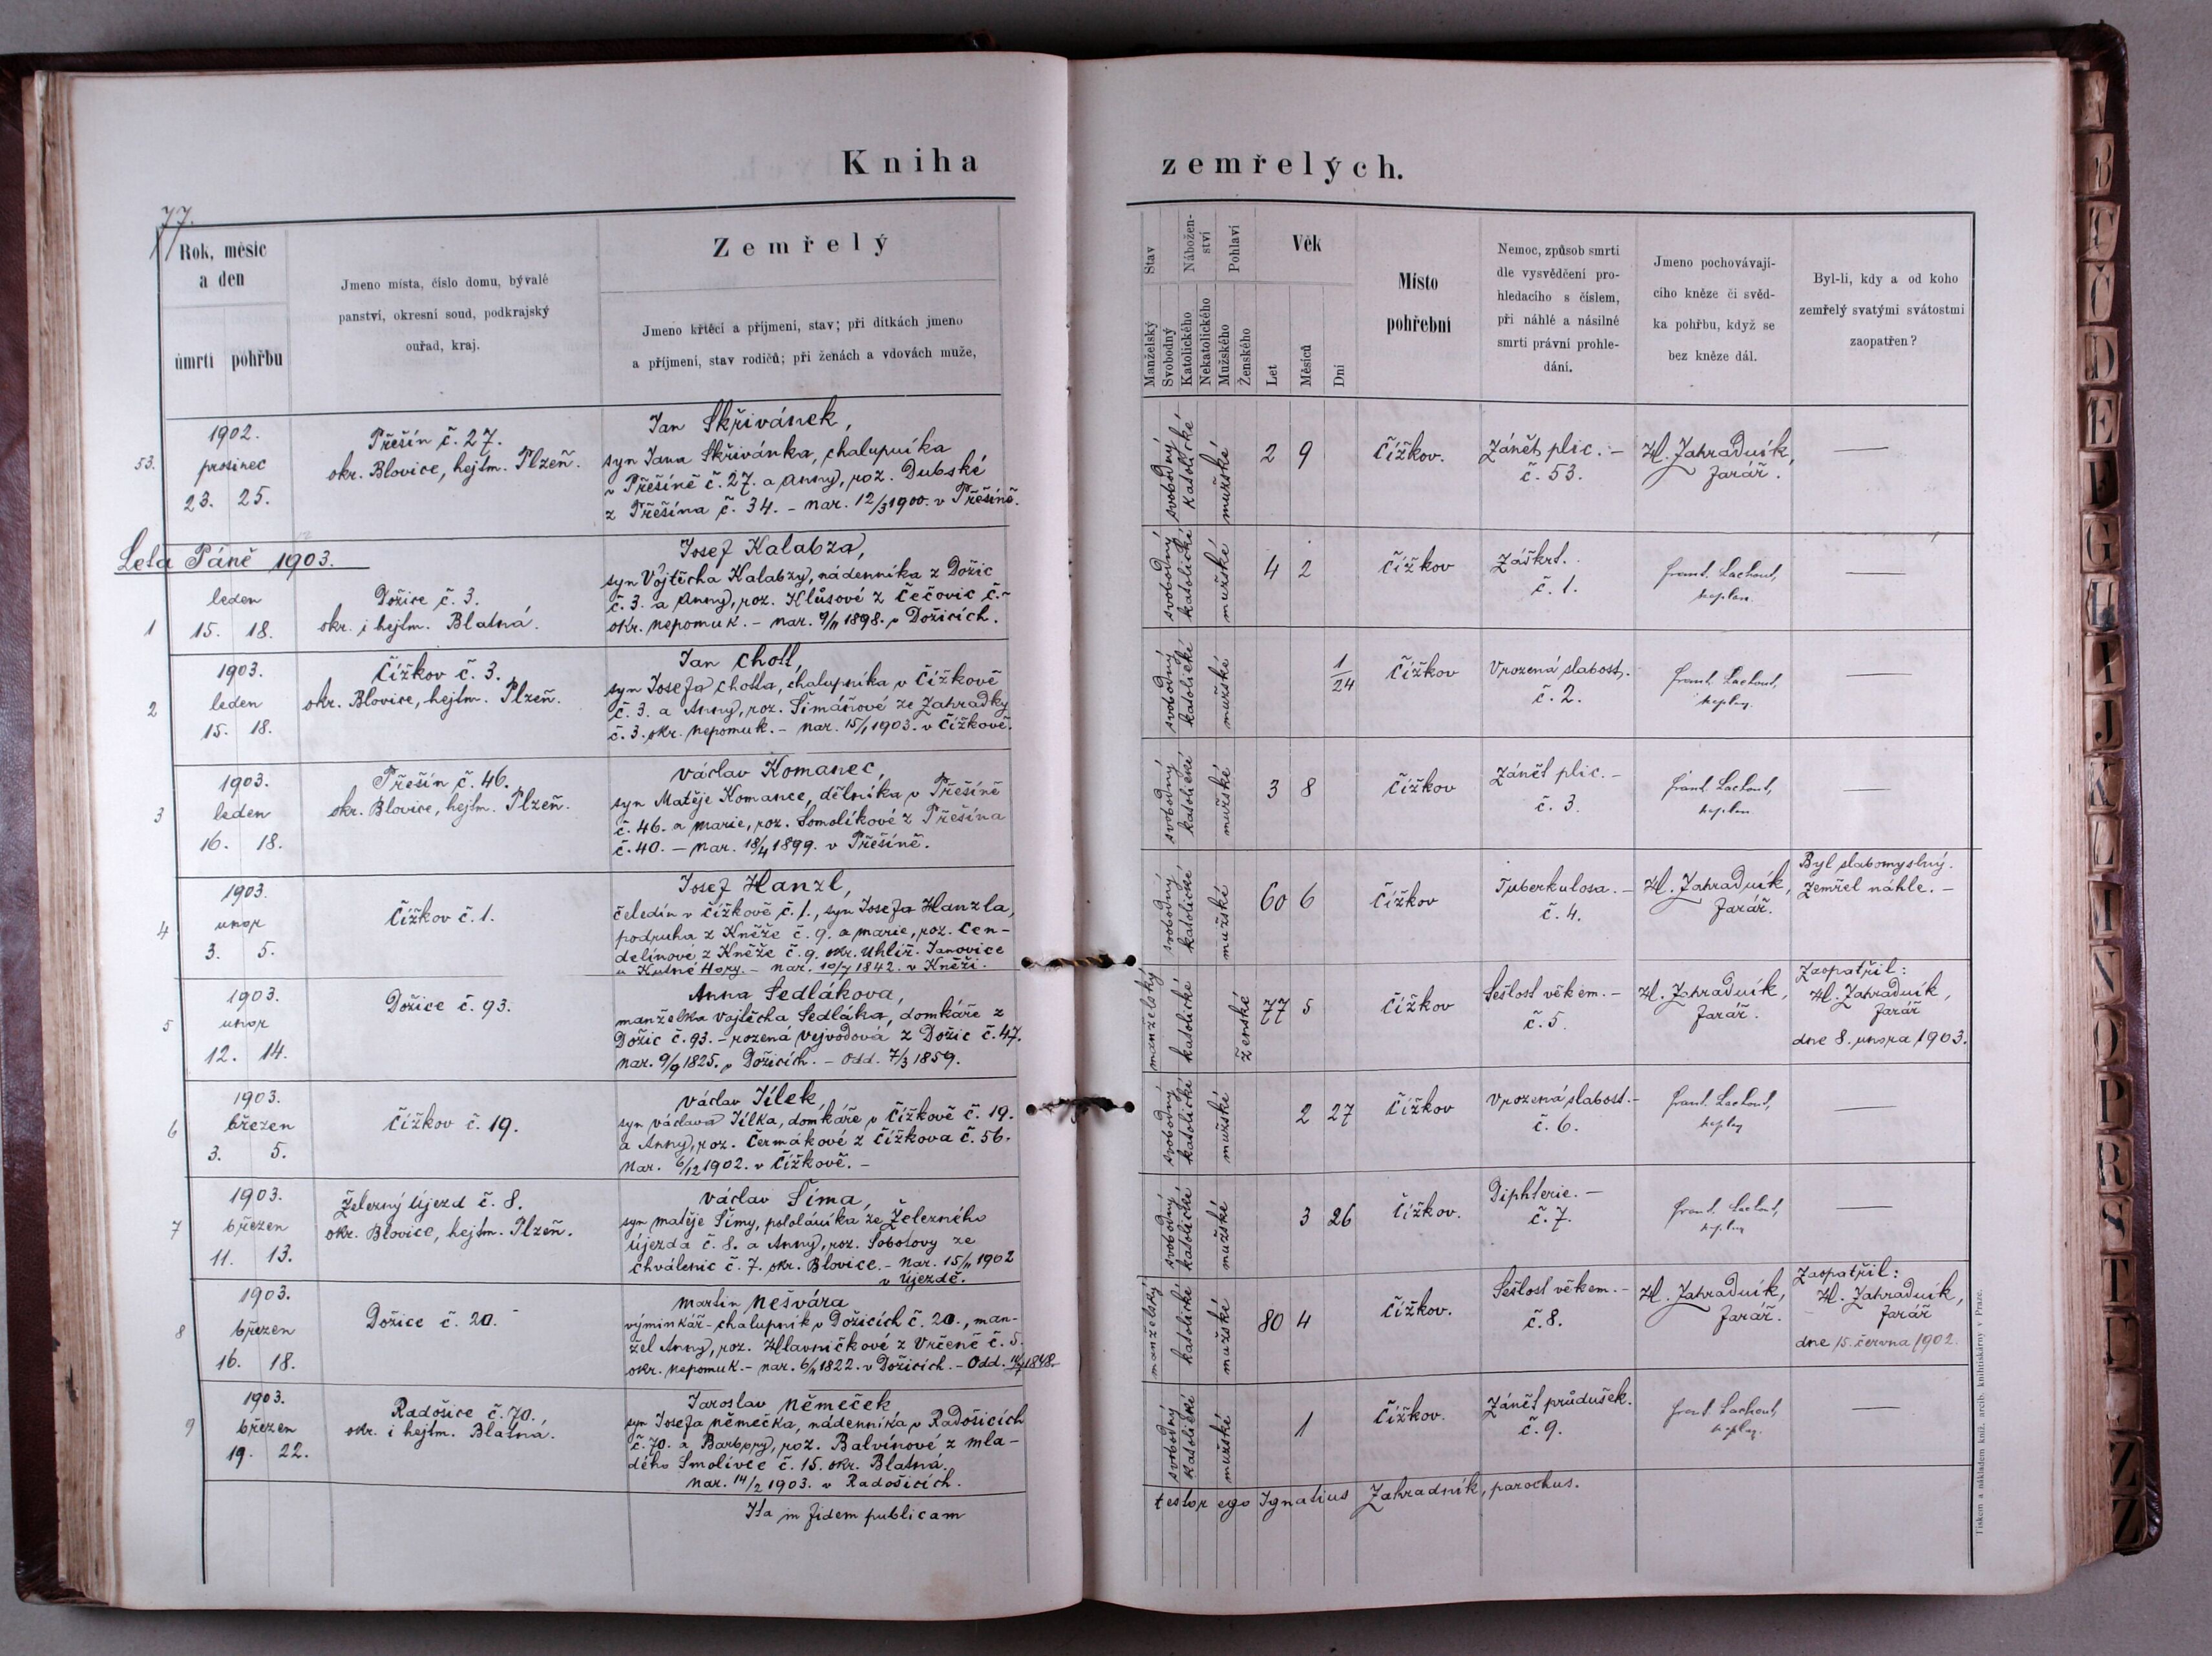 Kniha zemřelých.
77.
Rok, měsíc
a den
úmrtí pohřbu
Jmeno místa, číslo domu, bývalé
panství, okresní soud, podkrajský
ouřad, kraj.
Zemřelý
Jmeno křtěcí a příjmení, stav; při dítkách jmeno
a příjmení, stav rodičů; při ženách a vdovách muže,
Stav
Manželský
Svobodný
Nábožen-
ství
Katolického
Nekatolického
Pohlaví
Mužského
Ženského
Věk
Let
Měsíců
Dní
Místo
pohřební
Nemoc, způsob smrti
dle vysvědčení pro-
hledacího s číslem,
při náhlé a násilné
smrti právní prohle-
dání.
Jmeno pochovávají-
cího kněze či svěd-
ka pohřbu, když se
bez kněze dál.
Byl-li, kdy a od koho
zemřelý svatými svátostmi
zaopatřen?
53.
1902.
prosinec
23. 25.
Přešín č. 27.
okr. Blovice, hejtm. Plzeň.
Jan Skřivánek,
syn Jana Skřivánka, chalupníka
v Přešíně č. 27. a Anny, roz. Dubské
z Přešína č. 34. - nar. 12/3 1900. v Přešíně.
svobodný
katolické
mužské
2 9
Čížkov.
Zánět plic. -
č. 53.
Hl. Zahradník,
farář.
—
Leta Páně 1903.
1
leden
15. 18.
Dožice č. 3.
okr. i hejtm. Blatná.
Josef Kalabza,
syn Vojtěcha Kalabzy, nádenníka z Dožic
č. 3. a Anny, roz. Klůsové z Čečovic č. -
okr. Nepomuk. - nar. 9/11 1898. v Dožicích.
svobodný
katolické
mužské
4 2
Čížkov
Záškrt.
č. 1.
Frant. Lachout,
kaplan.
—
2
1903.
leden
15. 18.
Čížkov č. 3.
okr. Blovice, hejtm. Plzeň.
Jan Chott,
syn Josefa Chotta, chalupníka v Čížkově
č. 3. a Anny, roz. Šimáňové ze Zahradky
č. 3. okr. Nepomuk. - nar. 15/1 1903. v Čížkově.
svobodný
katolické
mužské
1/24
Čížkov
Vrozená slabost.
č. 2.
Frant. Lachout,
kaplan.
—
3
1903.
leden
16. 18.
Přešín č. 46.
okr. Blovice, hejtm. Plzeň.
Václav Komanec,
syn Matěje Komance, dělníka v Přešíně
č. 46. a Marie, roz. Somolíkové z Přešína
č. 40. - nar. 18/4 1899. v Přešíně.
svobodný
katolické
mužské
3 8
Čížkov
Zánět plic. -
č. 3.
Frant. Lachout,
kaplan
—
4
1903.
unor
3. 5.
Čížkov č. 1.
Josef Hanzl,
čeledín v Čížkově č. 1., syn Josefa Hanzla,
podruha z Kněže č. 9. a Marie, roz. Cen-
delínové z Kněže č. 9. okr. Uhlíř. Janovice
u Kutné Hory. - nar. 10/7 1842. v Kněži.
svobodný
katolické
mužské
60 6
Čížkov
Tuberkulosa. -
č. 4.
Hl. Zahradník,
farář.
Byl slabomyslný.
Zemřel náhle. -
5
1903.
unor
12. 14.
Dožice č. 93.
Anna Sedlákova,
manželka Vojtěcha Sedláka, domkáře z
Dožic č. 93. - rozená Vejvodová z Dožic č. 47.
nar. 9/9 1825. v Dožicích. - Odd. 7/3 1859.
manželský
katolické
ženské
77 5
Čížkov
Sešlost věkem. -
č. 5.
Hl. Zahradník,
farář.
Zaopatřil:
Hl. Zahradník,
farář
dne 8. unora 1903.
6
1903.
březen
3. 5.
Čížkov č. 19.
Václav Jílek,
syn Václava Jílka, domkáře v Čížkově č. 19.
a Anny, roz. Čermákové z Čížkova č. 56.
nar. 6/12 1902. v Čížkově. -
svobodný
katolické
mužské
2 27
Čížkov
Vrozená slabost. -
č. 6.
Frant. Lachout,
kaplan
—
7
1903.
březen
11. 13.
Železný Újezd č. 8.
okr. Blovice, hejtm. Plzeň.
Václav Šíma,
syn Matěje Šímy, pololáníka ze Železného
Újezda č. 8. a Anny, roz. Sobotovy ze
Chválenic č. 7. okr. Blovice. - nar. 15/11 1902
v Újezdě.
svobodný
katolické
mužské
3 26
Čížkov.
Diphterie. -
č. 7.
Frant. Lachout,
kaplan
—
8
1903.
březen
16. 18.
Dožice č. 20.
Martin Nešvára
výminkář-chalupník v Dožicích č. 20., man-
žel Anny, roz. Hlavničkové z Vrčeně č. 5.
okr. Nepomuk. - nar. 6/11 1822. v Dožicích. - Odd. 1848.
manželský
katolické
mužské
80 4
Čížkov.
Sešlost věkem. -
č. 8.
Hl. Zahradník,
farář.
Zaopatřil:
Hl. Zahradník,
farář
dne 15. června 1902.
9
1903.
březen
19. 22.
Radošice č. 70.,
okr. i hejtm. Blatná.
Jaroslav Němeček
syn Josefa Němečka, nádenníka v Radošicích
č. 70. a Barbory, roz. Balvínové z Mla-
dého Smolivce č. 15. okr. Blatná.
nar. 14/2 1903. v Radošicích.
svobodný
katolické
mužské
1
Čížkov.
Zánět průdušek.
č. 9.
Frant. Lachout,
kaplan.
—
Ita in fidem publicam testor ego Ignatius Zahradník, parochus.
Tiskem a nákladem kníž. arcib. knihtiskárny v Praze.
B
C
Č
D
E
F
G
H
I
J
K
L
M
N
O
P
R
S
T
Z
Z